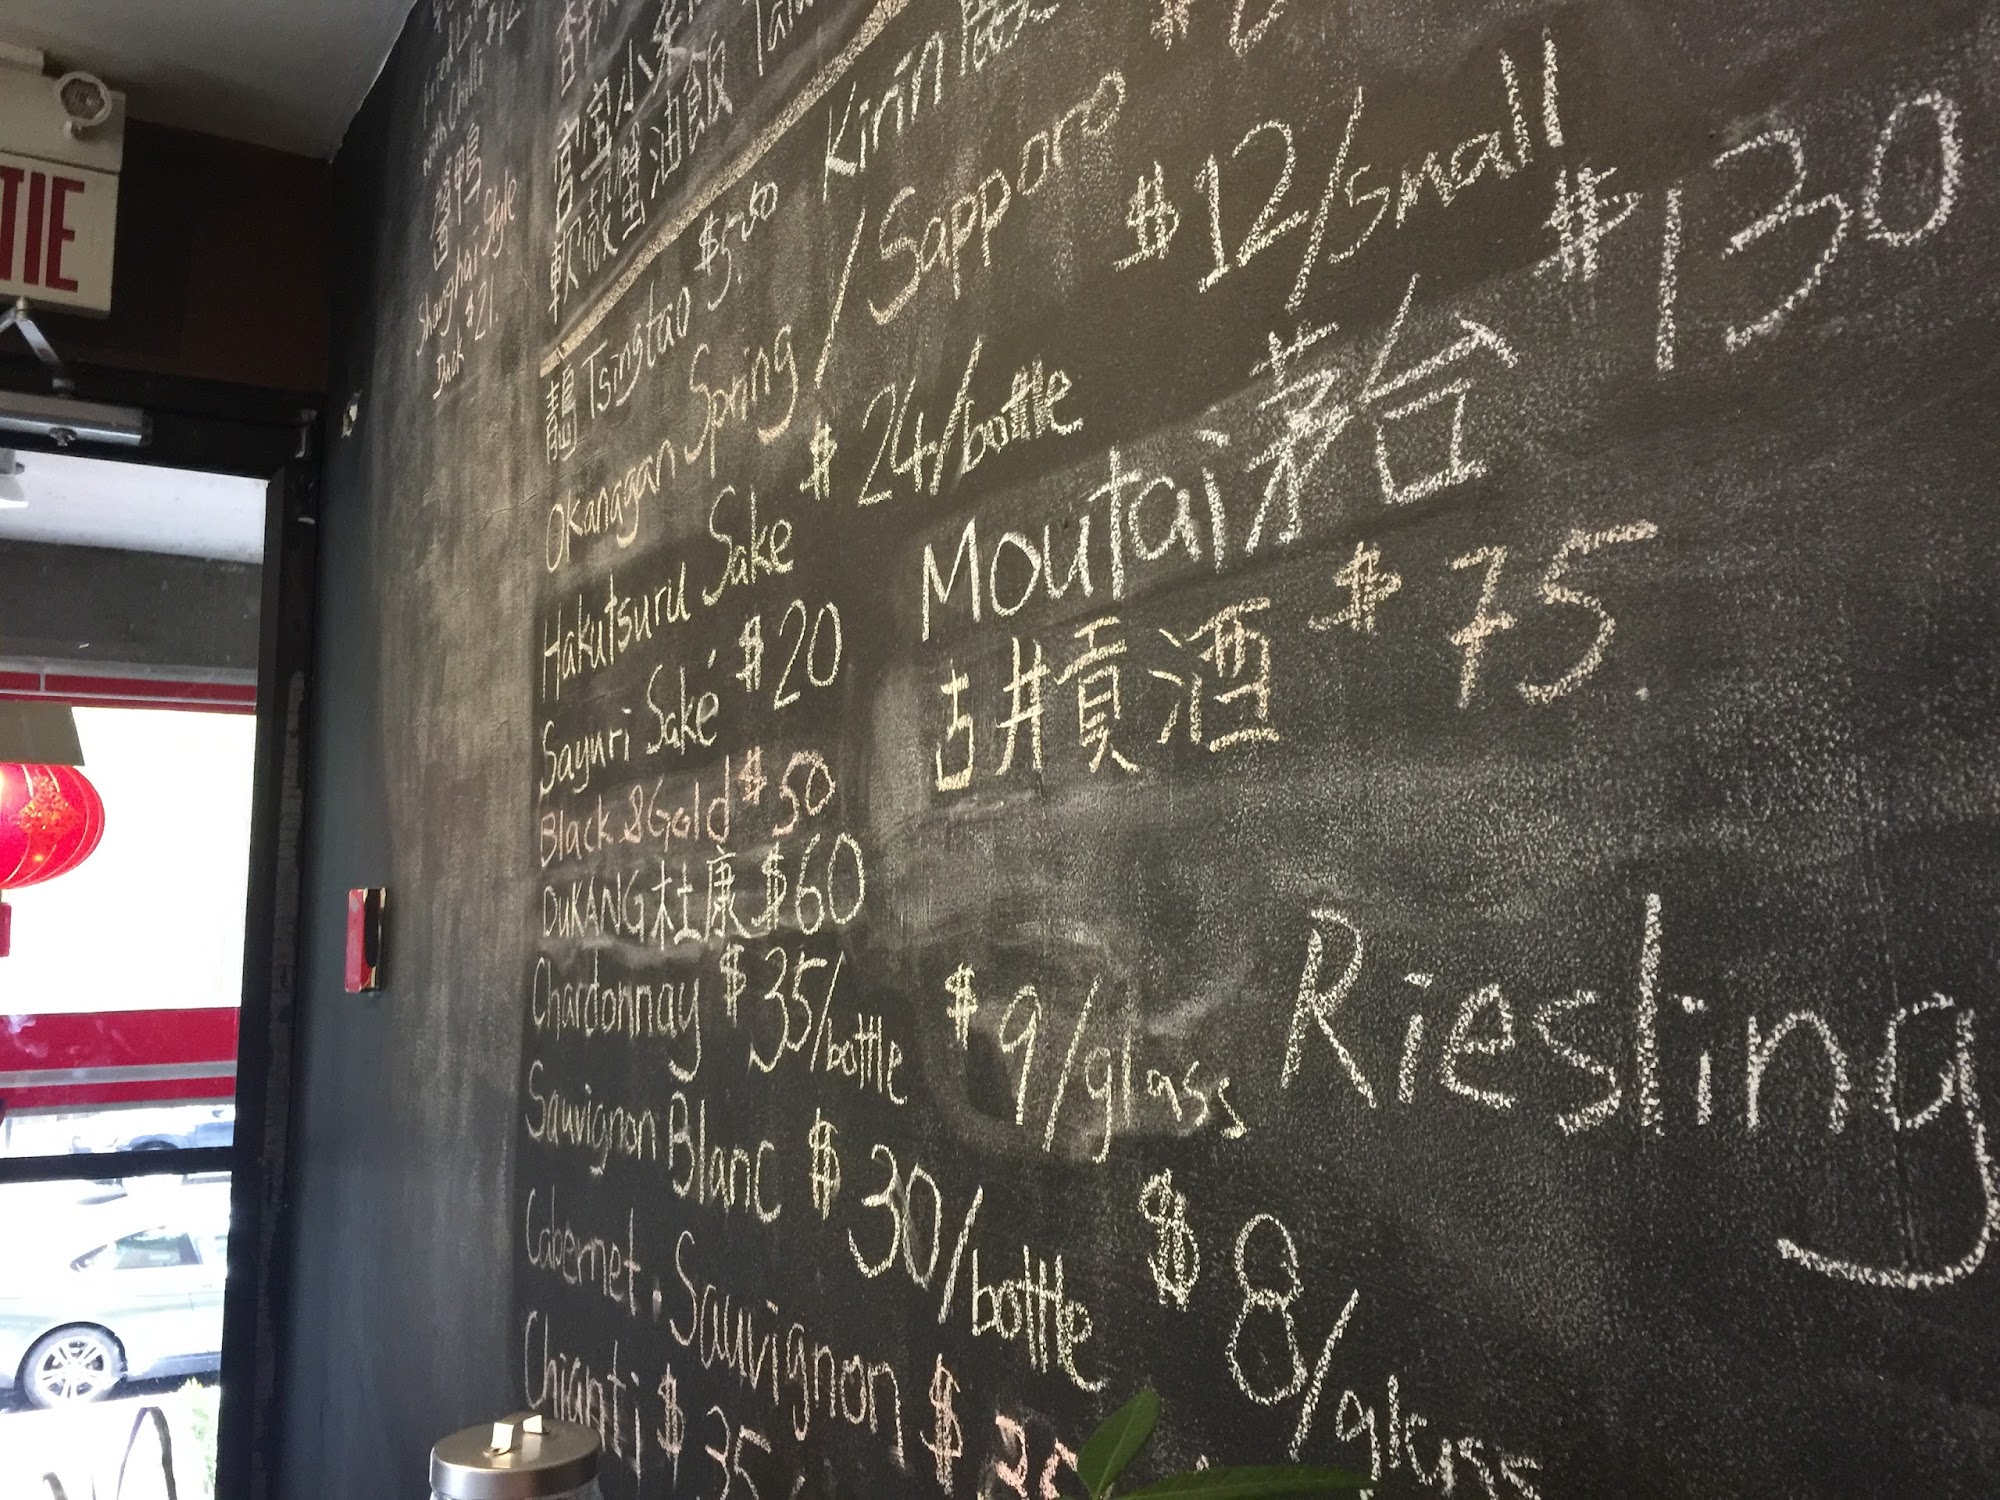 TIE
with Chilli
醬鴨
Shanghai Style
Duck $21.
宮宝小
軟殼蟹油飯
Tsingtao $5.00 Kirin
Okanagan Spring / Sapporo
Hakutsuru Sake $24/bottle $12/small
Sayuri Saké $20 Moutai 茅台 $130
Black & Gold $50 古井貢酒 $75.
DUKANG 杜康 $60
Chardonnay $35/bottle $9/glass Riesling
Sauvignon Blanc $30/bottle $8/glass
Cabernet . Sauvignon $
Chianti $35